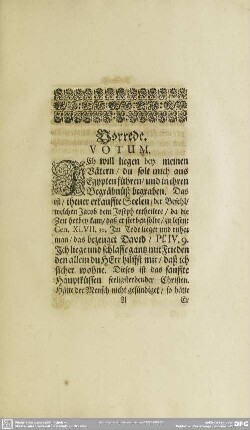 Vorrede.
VOTUM.
ICh will liegen bey meinen
Vätern / du solt mich aus
Egypten führen / und in ihren
Begräbnüß begraben. Das
ist / theuer erkauffte Seelen / der Befehl /
welchen Jacob dem Joseph ertheilete / da die
Zeit herbey kam / daß er sterben solte / zu lesen:
Gen. XLVII, 30. Im Tode lieget und ruhet
man / das bezeuget David / Ps. IV, 9.
Ich liege und schlaffe gantz mit Frieden
denn allein du HErr hilffst mir / daß ich
sicher wohne. Dieses ist das sanffte
Hauptküssen seligsterbender Christen.
Hätte der Mensch nicht gesündiget / so hätte
A Er